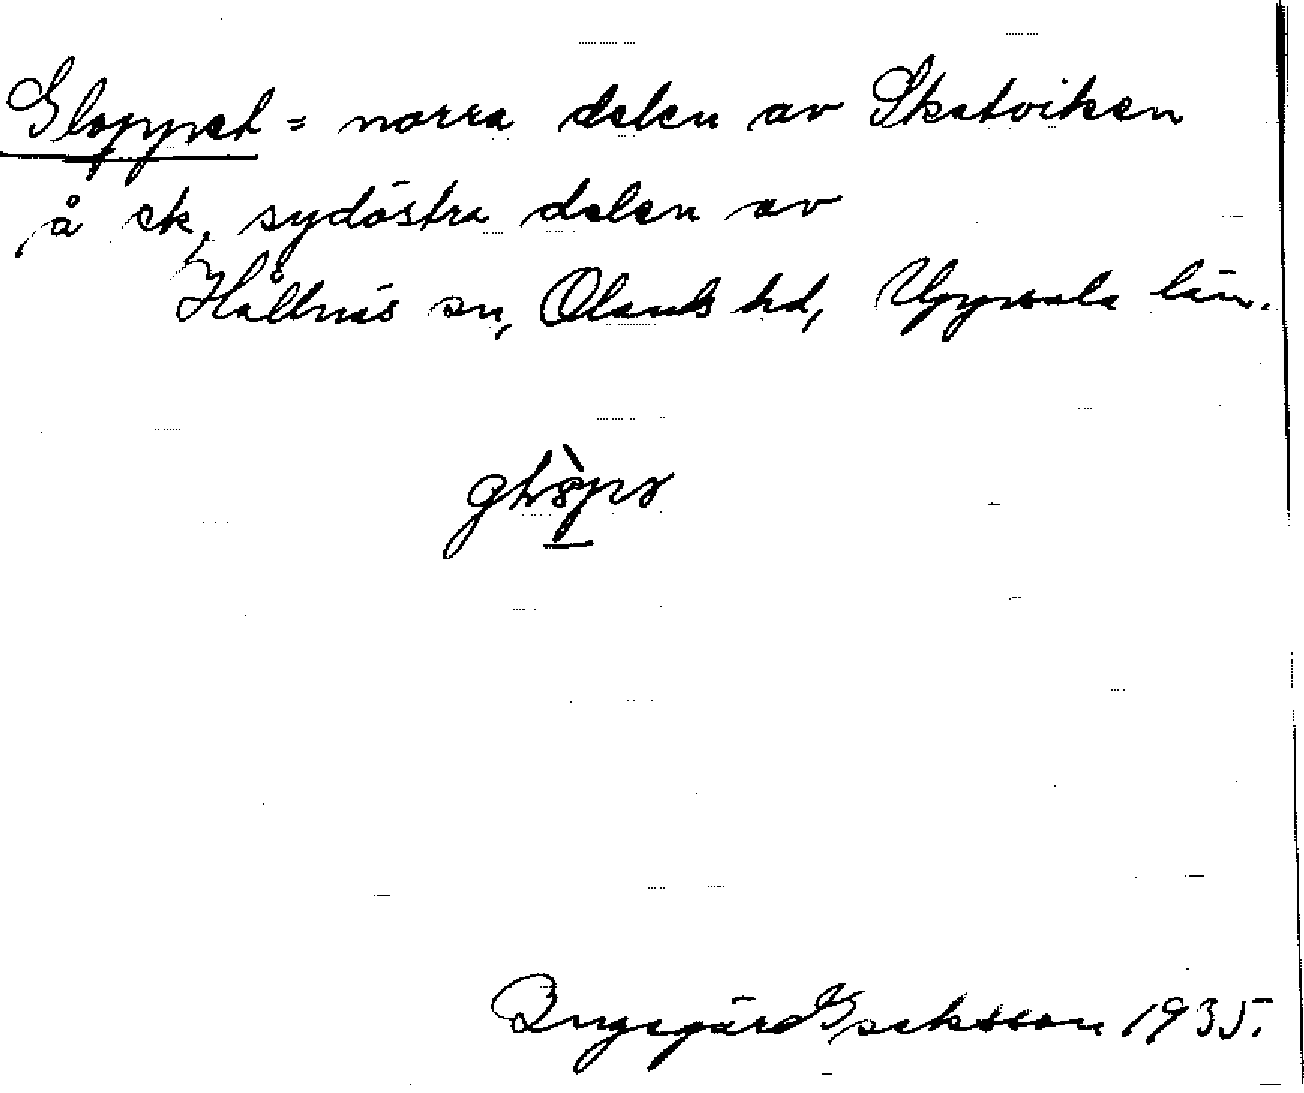 Gloppet = norra delen av Skatviken
å ek, sydöstra delen av
Hållnäs sn, Olands hd, Uppsala län.
Ingegärd Isaksson 1935.